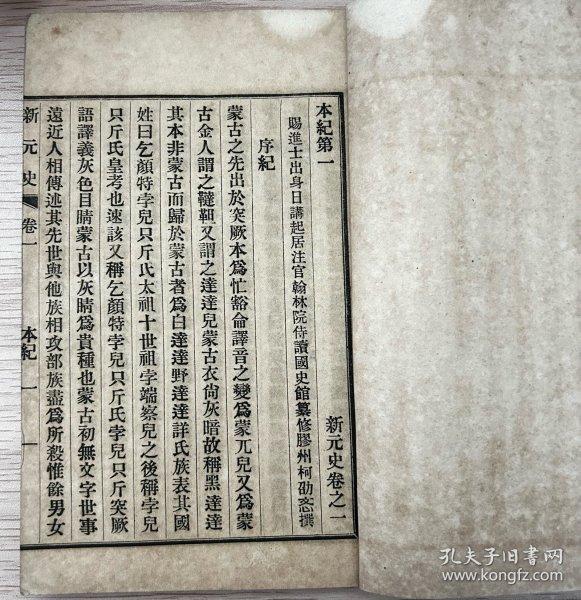 新元史卷之一
本紀第一
賜進士出身日講起居注官翰林院侍讀國史館纂修膠州柯劭忞撰
序紀
蒙古之先出於突厥本爲忙豁侖譯音之變爲蒙兀兒又爲蒙
古金人謂之韃靼又謂之達達兒蒙古衣尙灰暗故稱黑達達
其本非蒙古而歸於蒙古者爲白達達野達達詳氏族表其國
姓曰乞顏特孛兒只斤氏太祖十世祖孛端察兒之後稱孛兒
只斤氏皇考也速該又稱乞顏特孛兒只斤氏孛兒只斤突厥
語譯義灰色目睛蒙古以灰睛爲貴種也蒙古初無文字世事
遠近人相傳述其先世與他族相攻部族盡爲所殺惟餘男女
新元史 卷一 本紀一 一
孔夫子旧书网
www.kongfz.com